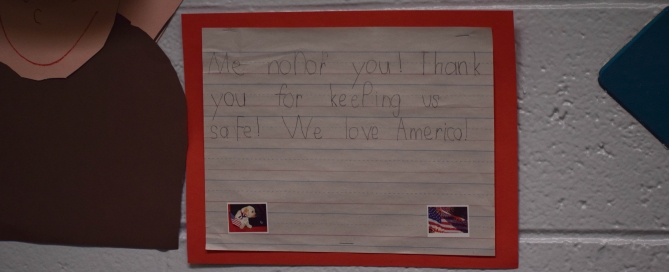 We honor you! Thank
you for keeping us
safe! We love America!